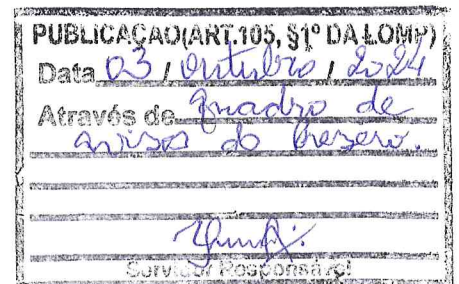 PUBLICAÇÃO(ART.105, §1º DA LOMP)
Data 03 / Outubro / 2024
Através de Quadro de
avisos do
Servidor Responsável